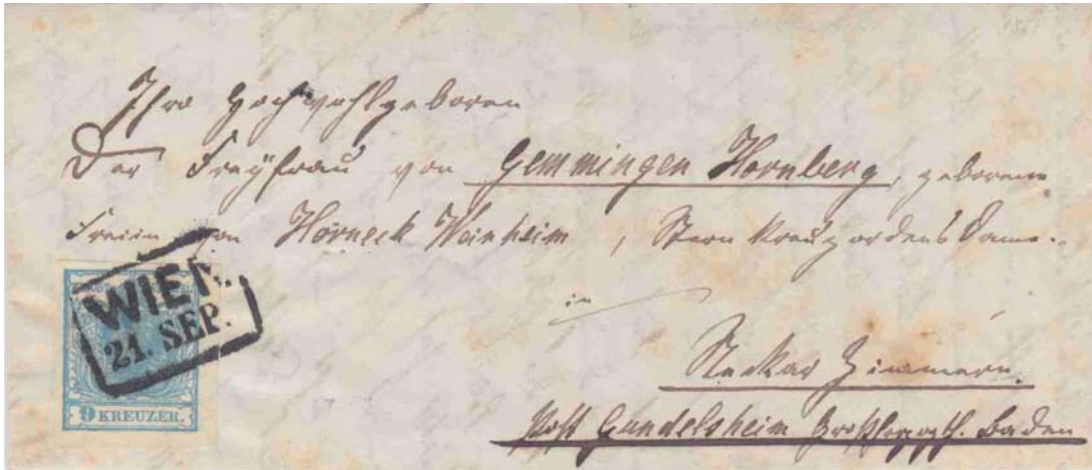 Ihro Hochwohlgeboren
Der Freÿfrau von Gemmingen Hornberg, geborene
Freiin von Horneck Weinheim, Sternkreuzordens Dame.
in
Neckar Zimmern.
Post Gundelsheim Großherzogth. Baden
WIEN.
21. SEP.
9 KREUZER.